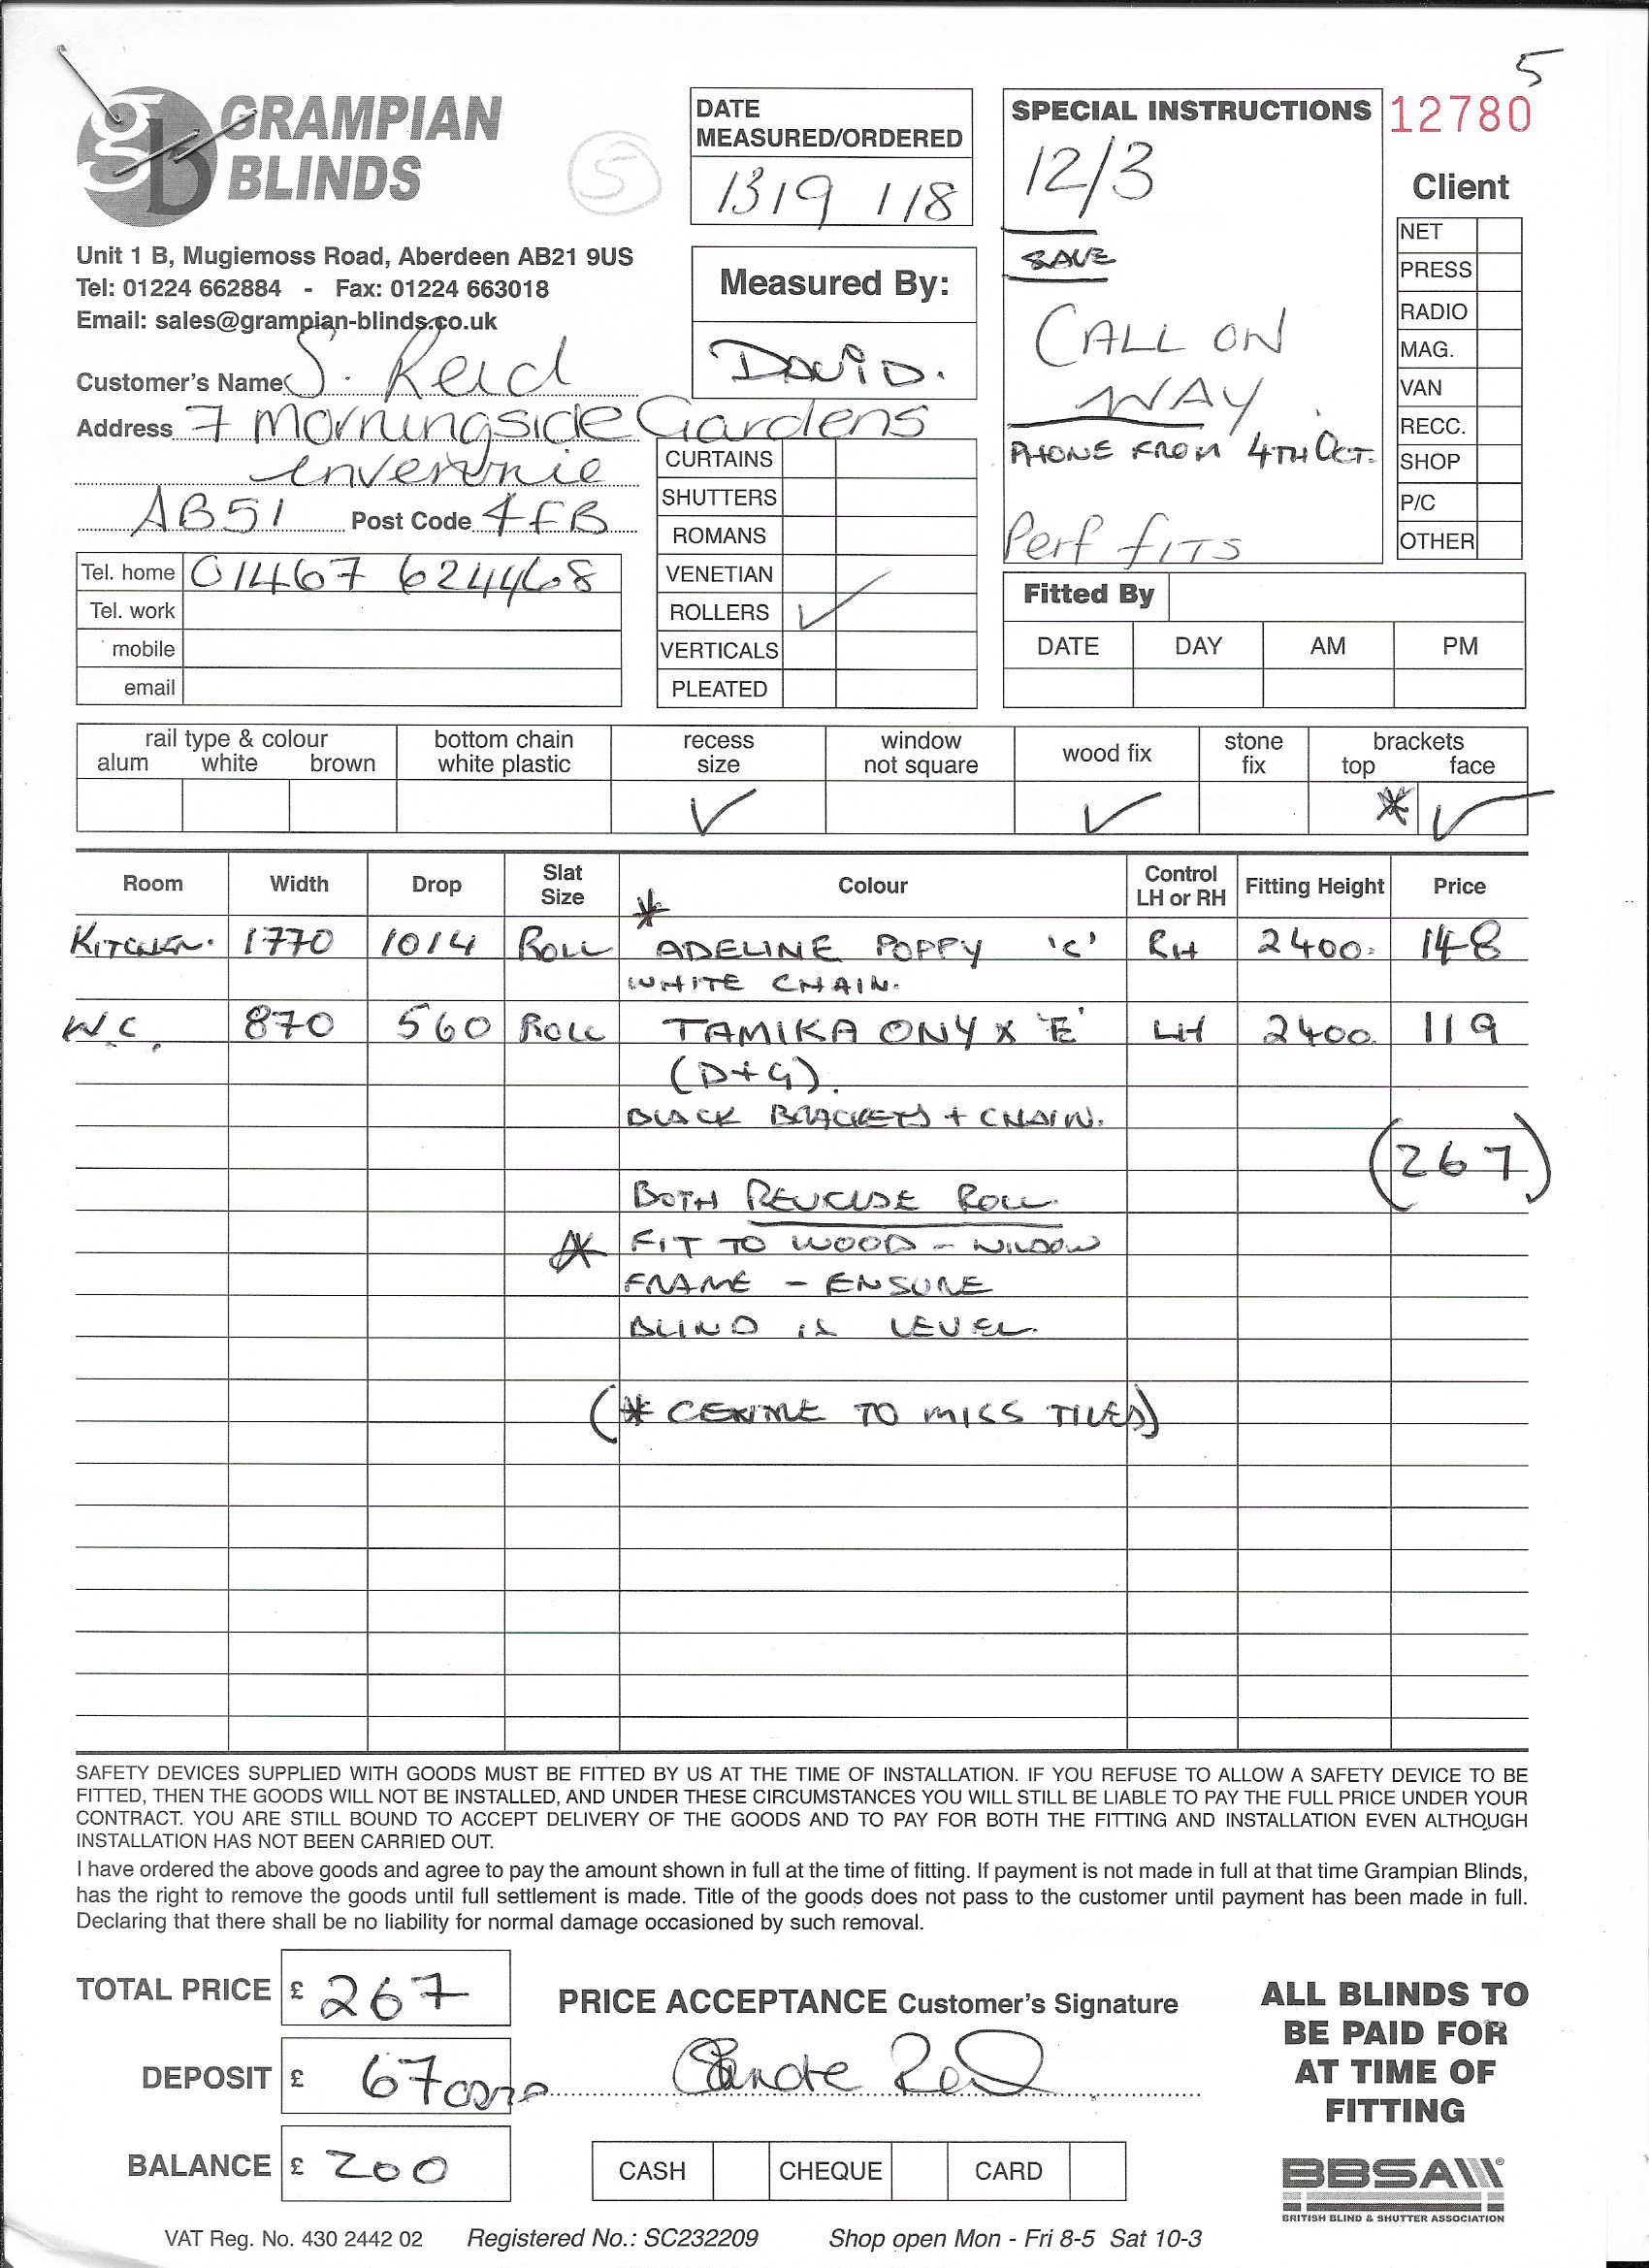 5
GRAMPIAN
BLINDS
5
Unit 1 B, Mugiemoss Road, Aberdeen AB21 9US
Tel: 01224 662884 - Fax: 01224 663018
Email: sales@grampian-blinds.co.uk
Customer's Name S. Reid
Address 7 Morningside Gardens
Inverurie
AB51 Post Code 4FB
Tel. home 01467 624468
Tel. work
mobile
email
DATE
MEASURED/ORDERED
13/9/18
Measured By:
DAVID.
CURTAINS
SHUTTERS
ROMANS
VENETIAN
ROLLERS ✓
VERTICALS
PLEATED
SPECIAL INSTRUCTIONS
12/3
CALL ON
WAY
PHONE FROM 4TH OCT.
Perf fits
12780
Client
NET
PRESS
RADIO
MAG.
VAN
RECC.
SHOP
P/C
OTHER
Fitted By
DATE DAY AM PM
rail type & colour bottom chain recess window wood fix stone brackets
alum white brown white plastic size not square fix top face
✓ ✓ * ✓
Room Width Drop Slat Size Colour Control LH or RH Fitting Height Price
*
KITCHEN. 1770 1014 ROLL ADELINE POPPY 'C' RH 2400. 148
WHITE CHAIN.
W.C. 870 560 ROLL TAMIKA ONYX 'E' LH 2400. 119
(D+G).
BLACK BRACKETS + CHAIN.
(267)
BOTH REVERSE ROLL
* FIT TO WOOD - WINDOW
FRAME - ENSURE
BLIND IS LEVEL.
(* CENTRE TO MISS TILES)
SAFETY DEVICES SUPPLIED WITH GOODS MUST BE FITTED BY US AT THE TIME OF INSTALLATION. IF YOU REFUSE TO ALLOW A SAFETY DEVICE TO BE
FITTED, THEN THE GOODS WILL NOT BE INSTALLED, AND UNDER THESE CIRCUMSTANCES YOU WILL STILL BE LIABLE TO PAY THE FULL PRICE UNDER YOUR
CONTRACT. YOU ARE STILL BOUND TO ACCEPT DELIVERY OF THE GOODS AND TO PAY FOR BOTH THE FITTING AND INSTALLATION EVEN ALTHOUGH
INSTALLATION HAS NOT BEEN CARRIED OUT.
I have ordered the above goods and agree to pay the amount shown in full at the time of fitting. If payment is not made in full at that time Grampian Blinds,
has the right to remove the goods until full settlement is made. Title of the goods does not pass to the customer until payment has been made in full.
Declaring that there shall be no liability for normal damage occasioned by such removal.
TOTAL PRICE £ 267
DEPOSIT £ 67
BALANCE £ 200
PRICE ACCEPTANCE Customer's Signature
Reid
CASH CHEQUE CARD
ALL BLINDS TO
BE PAID FOR
AT TIME OF
FITTING
BBSA
BRITISH BLIND & SHUTTER ASSOCIATION
VAT Reg. No. 430 2442 02 Registered No.: SC232209 Shop open Mon - Fri 8-5 Sat 10-3